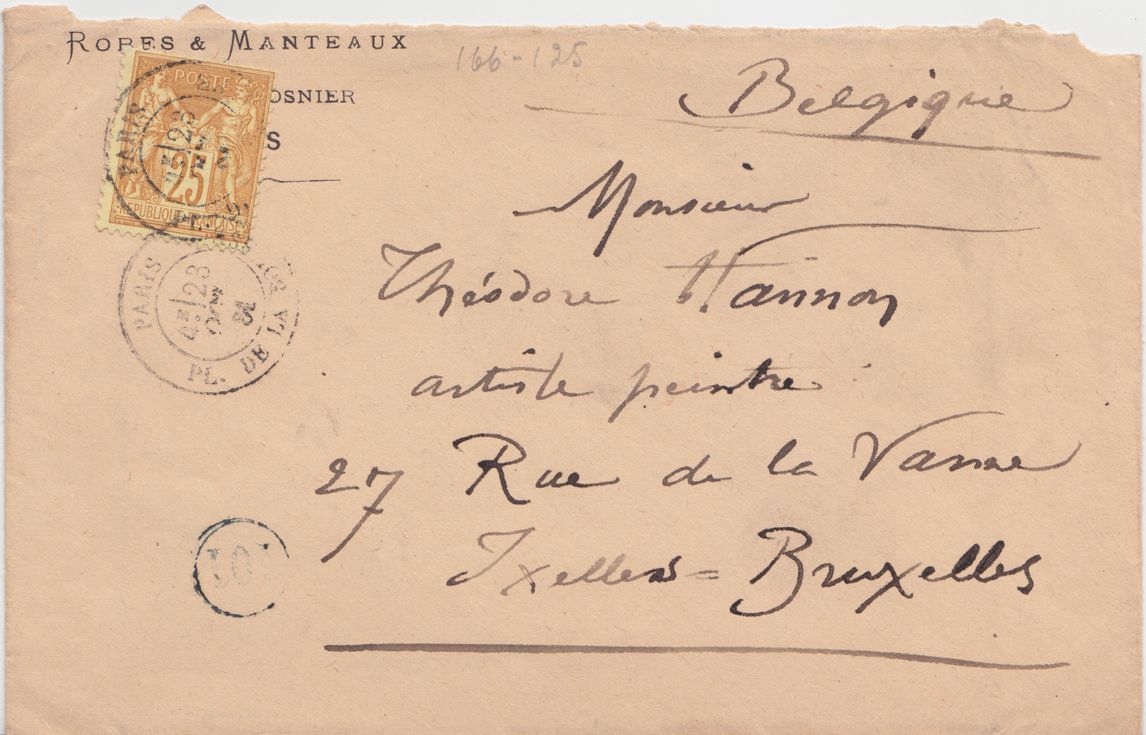 ROBES & MANTEAUX
166-125
OSNIER
S
Belgique
POSTE
25
REPUBLIQUE FRANÇAISE
PARIS
23
PARIS
PL. DE LA
4E 23
81
Monsieur
Théodore Hannon
artiste peintre
27 Rue de la Vanne
Ixelles = Bruxelles